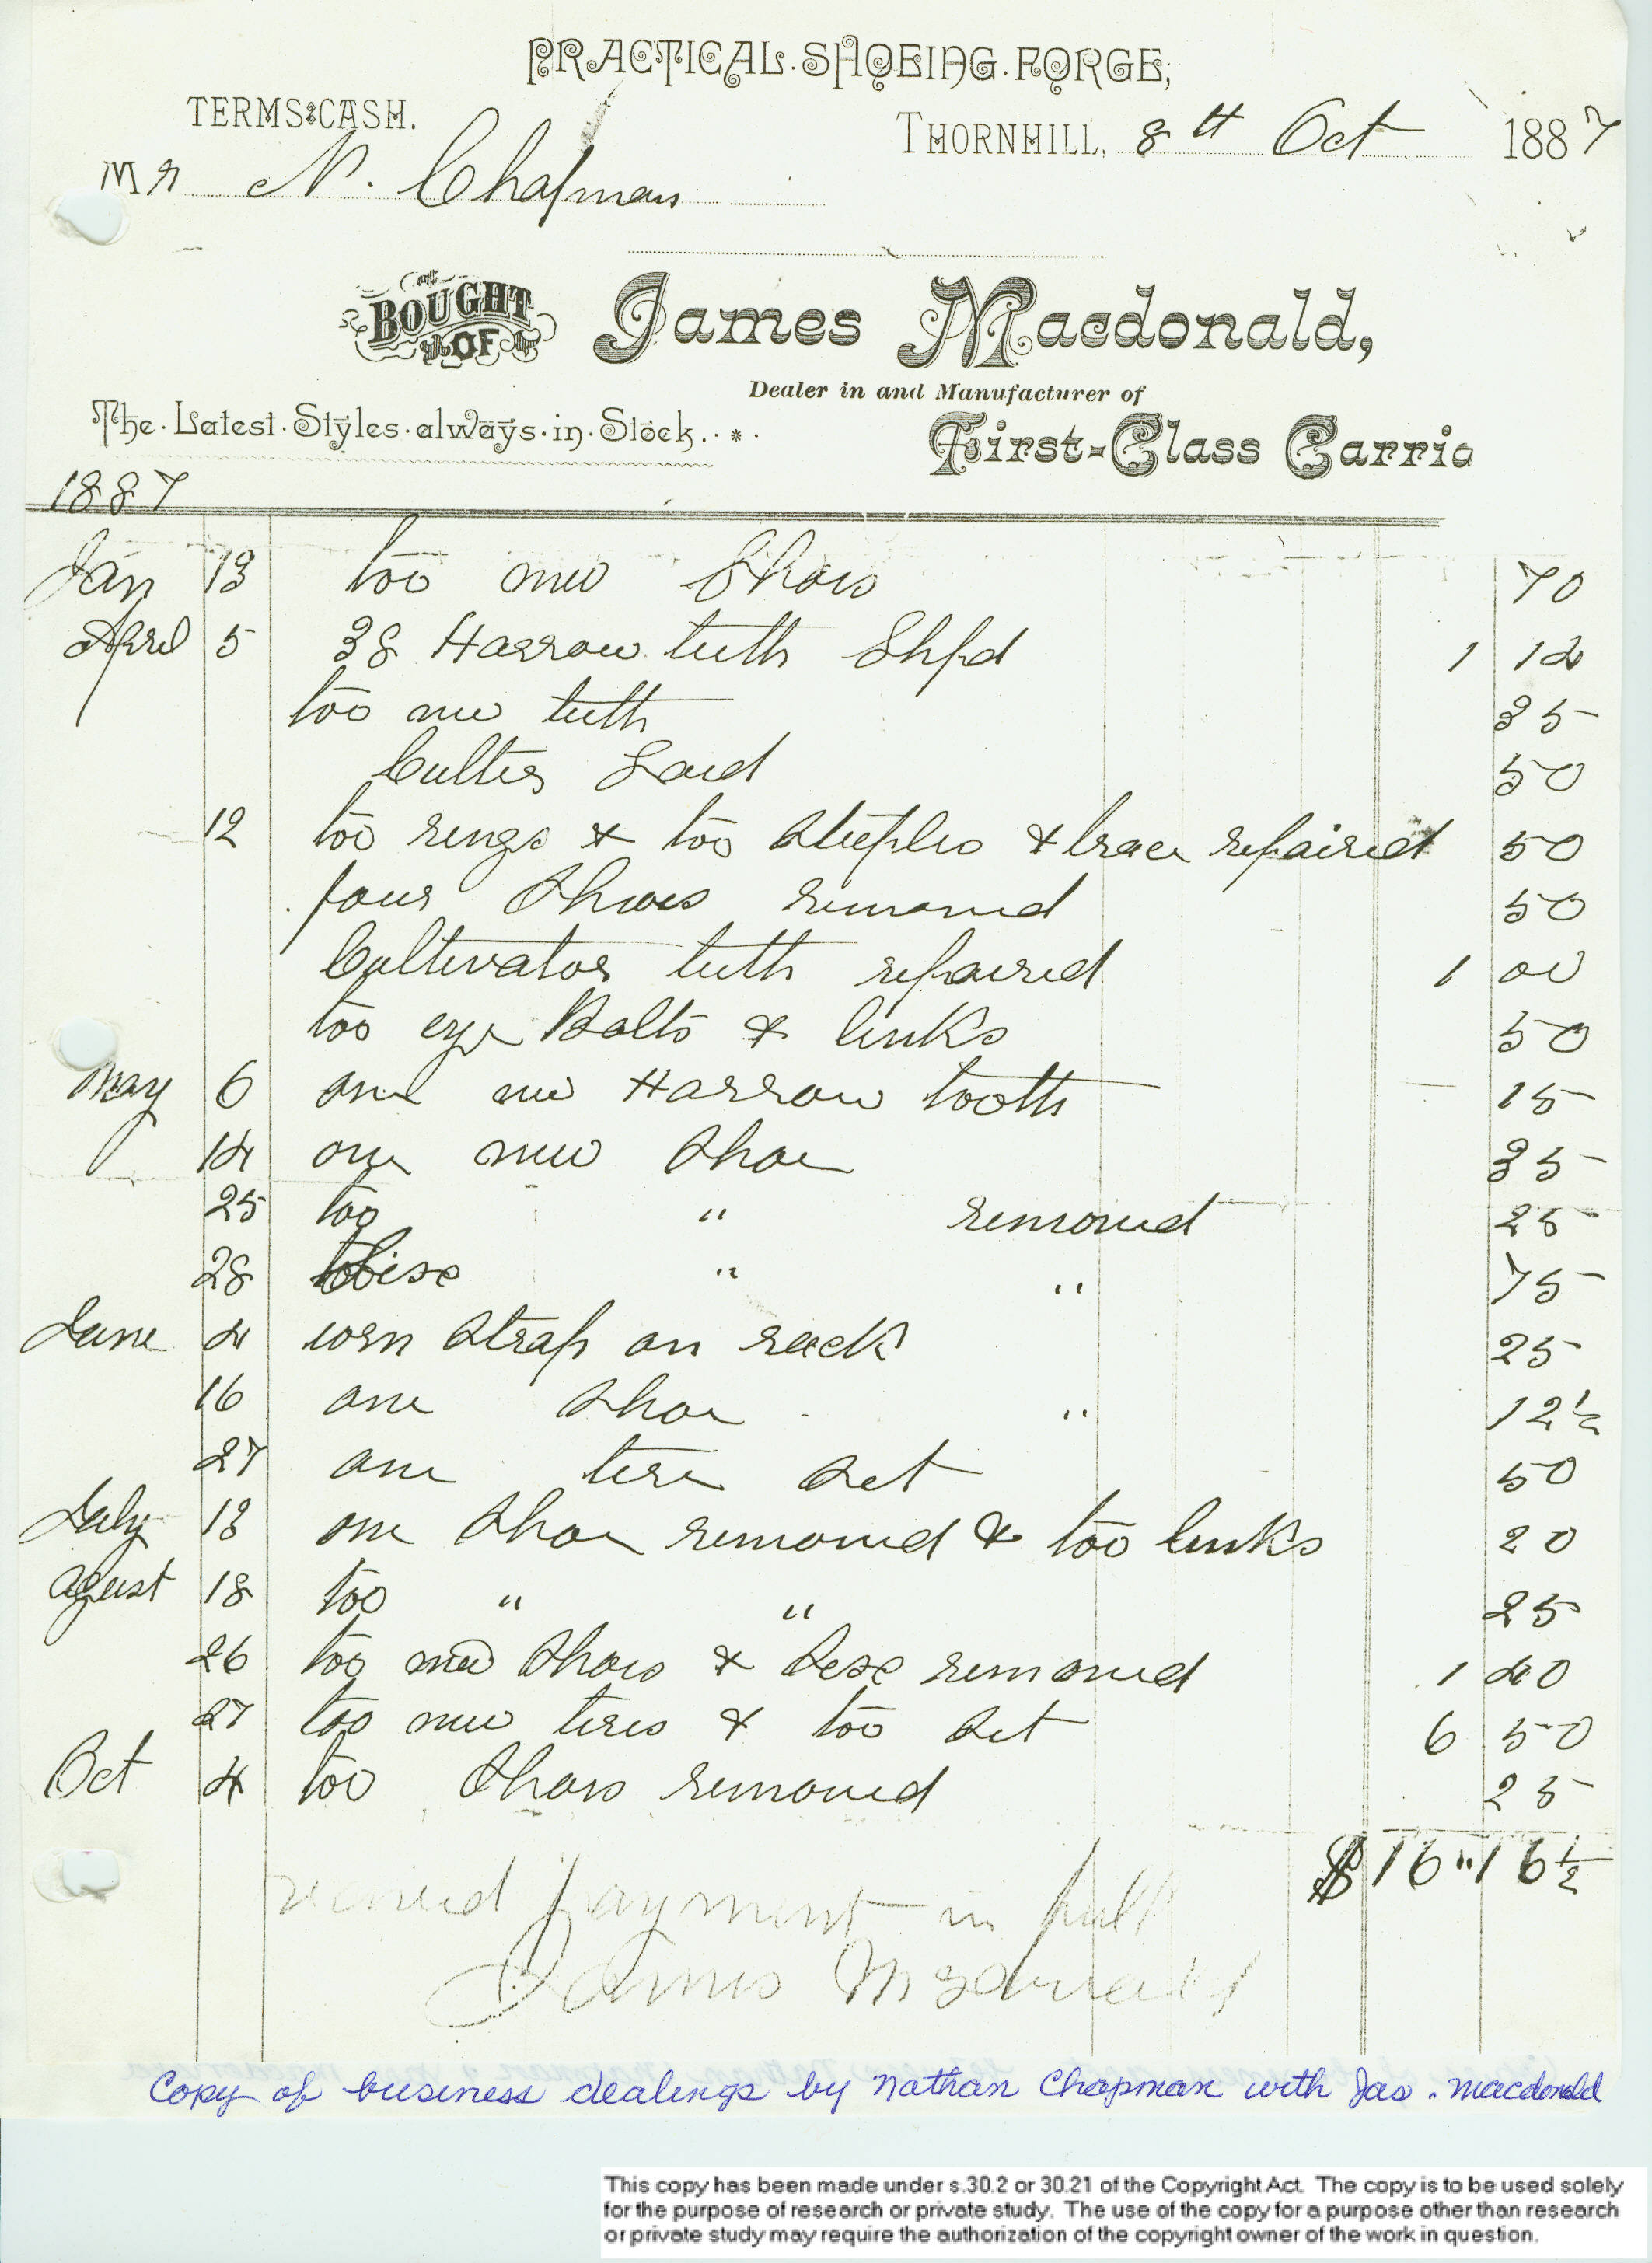 PRACTICAL SHOEING FORGE,
TERMS CASH. THORNHILL, 8th Oct 1887
Mr N. Chapman
BOUGHT OF James Macdonald,
Dealer in and Manufacturer of
The Latest Styles always in Stock. First-Class Carria
1887
Jan 13 too new Shoes 70
April 5 38 Harrow teeth Shpd 1 12
too new teeth 35
Culter Laid 50
12 too rings & too steeples & brace repaired 50
four Shoes removed 50
Cultivator teeth repaired 1 00
too eye Bolts & links 50
May 6 one new Harrow tooth 15
14 one new Shoe 35
25 too " removed 25
28 " " 75
June 4 strap on rack 25
16 one shoe " 12½
27 one tire set 50
July 13 one shoe removed & too links 20
agust 18 too " " 25
26 too new shoes & sexe removed 1 40
27 too new tires & too set 6 50
Oct 4 too Shoes removed 25
$16"16½
recived payment in full
James
Copy of business dealings by Nathan Chapman with Jas. Macdonald
This copy has been made under s.30.2 or 30.21 of the Copyright Act. The copy is to be used solely
for the purpose of research or private study. The use of the copy for a purpose other than research
or private study may require the authorization of the copyright owner of the work in question.